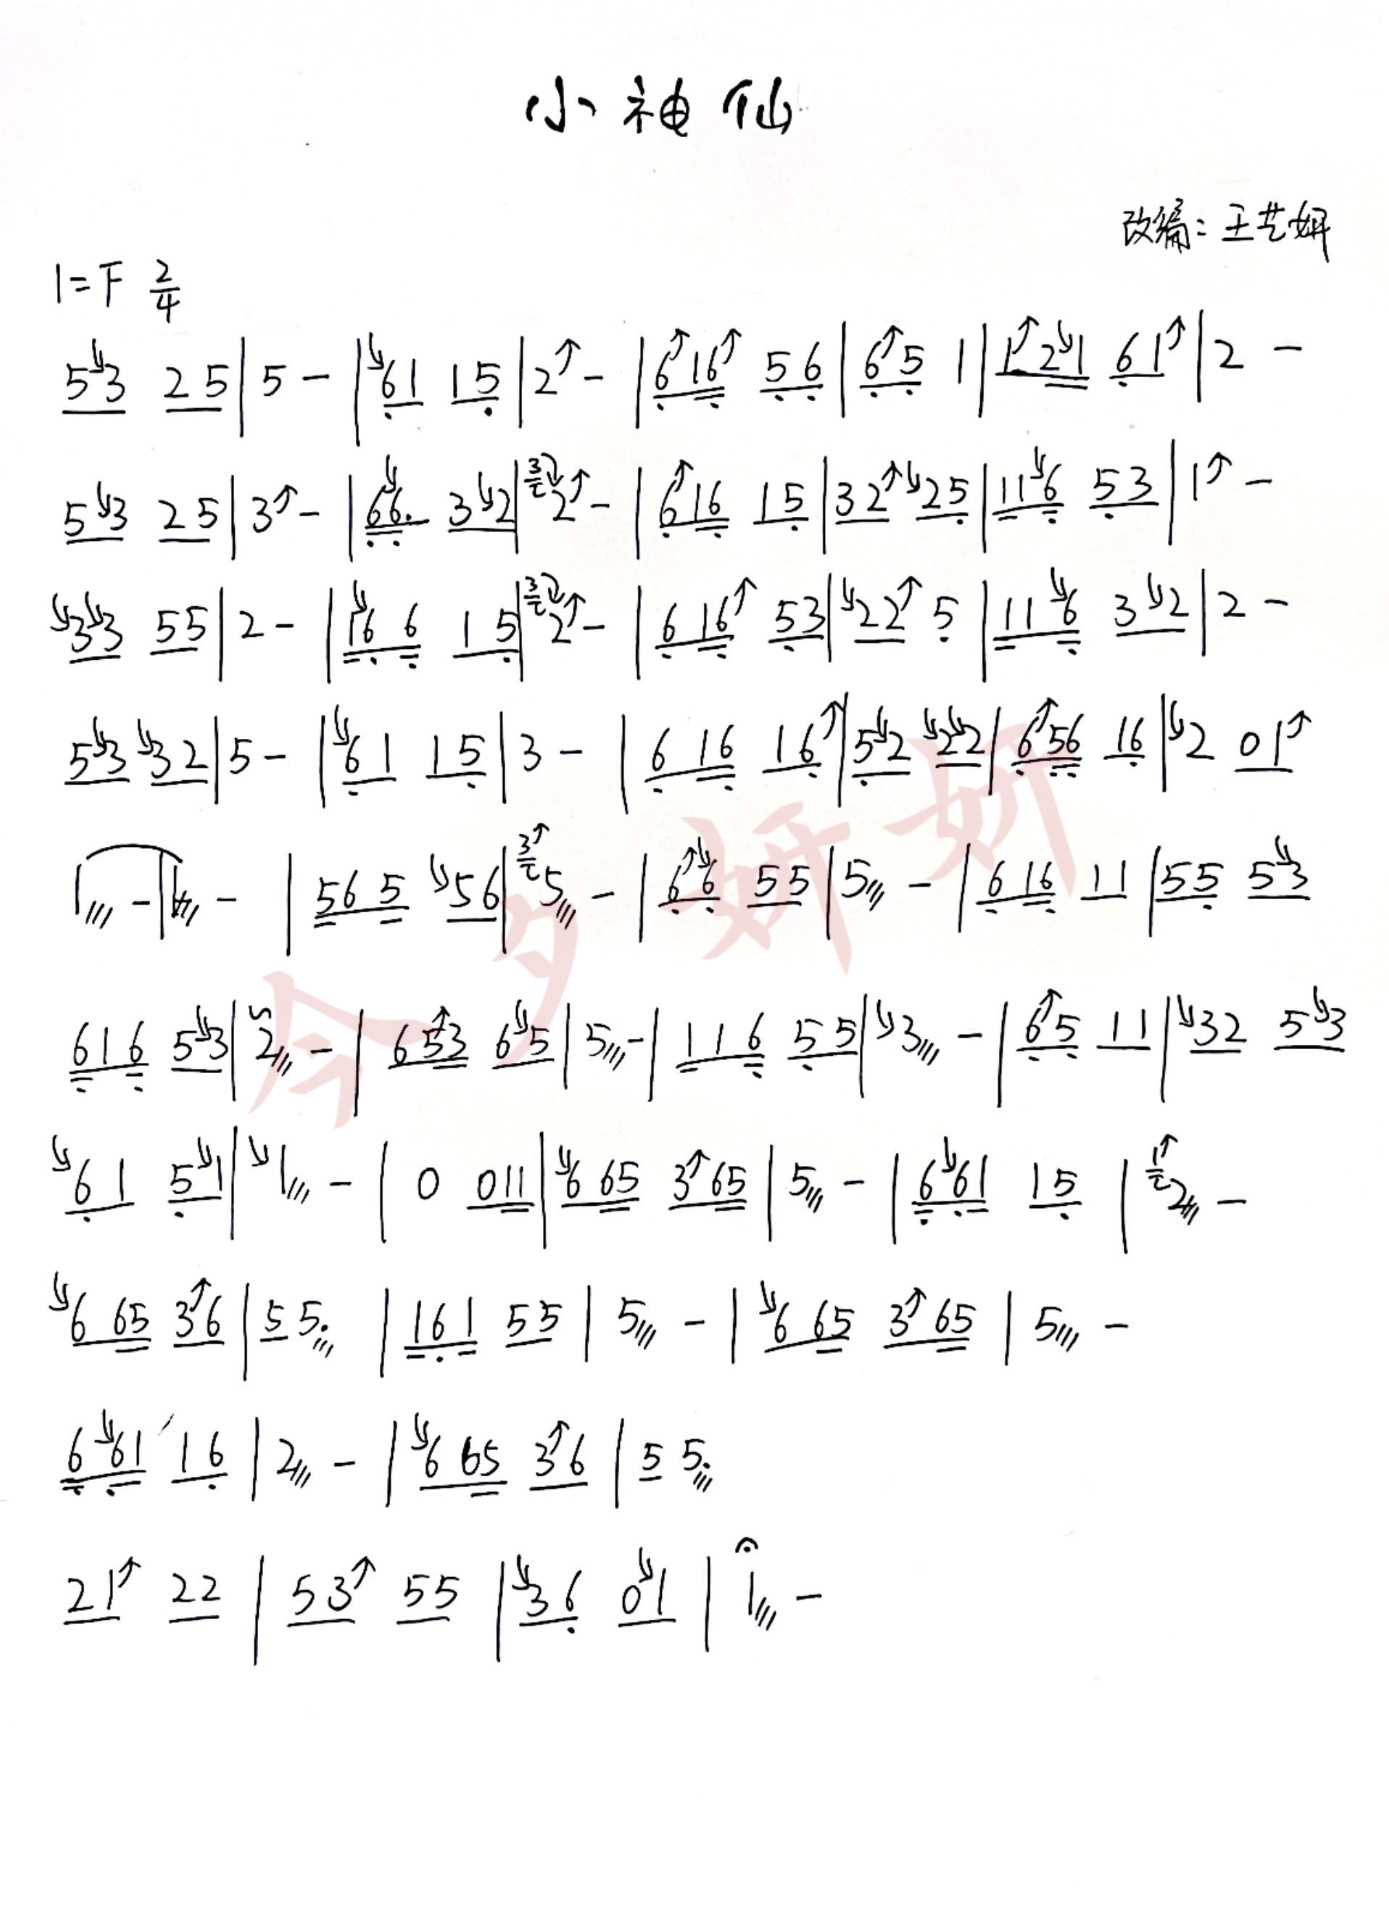 小神仙
改编：王艺妍
1=F 2/4
53 25|5-|61 15|2-|616 56|65 1|121 61|2-
53 25|3-|66. 32|32-|616 15|32 25|116 53|1-
33 55|2-|166 15|32-|616 53|22 5|116 32|2-
53 32|5-|61 15|3-|616 16|52 22|656 16|2 01
1-|1-|565 56|35-|66 55|5-|616 11|55 53
616 53|2-|653 65|5-|116 55|3-|65 11|32 53
61 51|1-|0 011|665 365|5-|661 15|12-
665 36|55.|161 55|5-|665 365|5-
661 16|2-|665 36|55.
21 22|53 55|36 01|1-
今夕妍妍